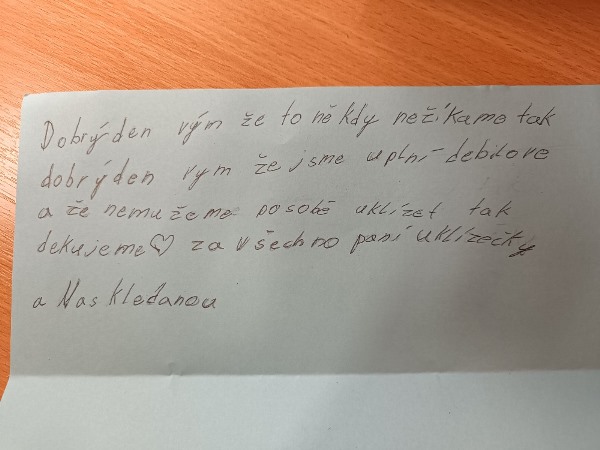 Dobrýden vým že to někdy nežíkame tak
dobrýden vym že jsme uplní debilove
a že nemužeme posobě uklízet tak
dekujeme♡ za všechno paní uklízečky
a Nas kledanou